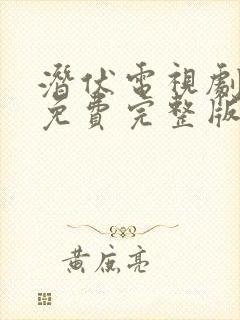 潛伏電視劇
免費完整版
黃庭亮